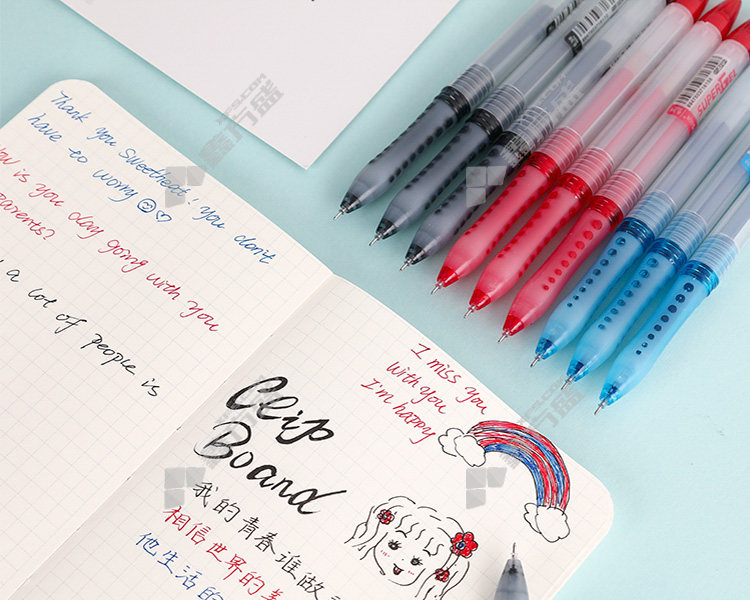 Thank you Sweetheart! You don't
have to worry
How is you day going with you
parents?
a lot of people is
I miss you
With you
I'm happy
Clip
Board
我的青春谁做
相信世界的美
他生活的
SUPER GEL